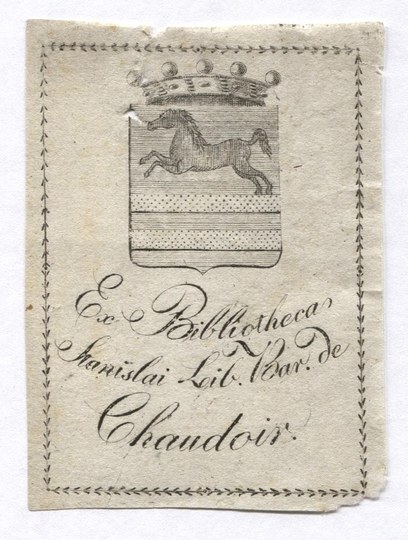 Ex Bibliotheca
Stanislai Lib. Bar. de
Chaudoir.